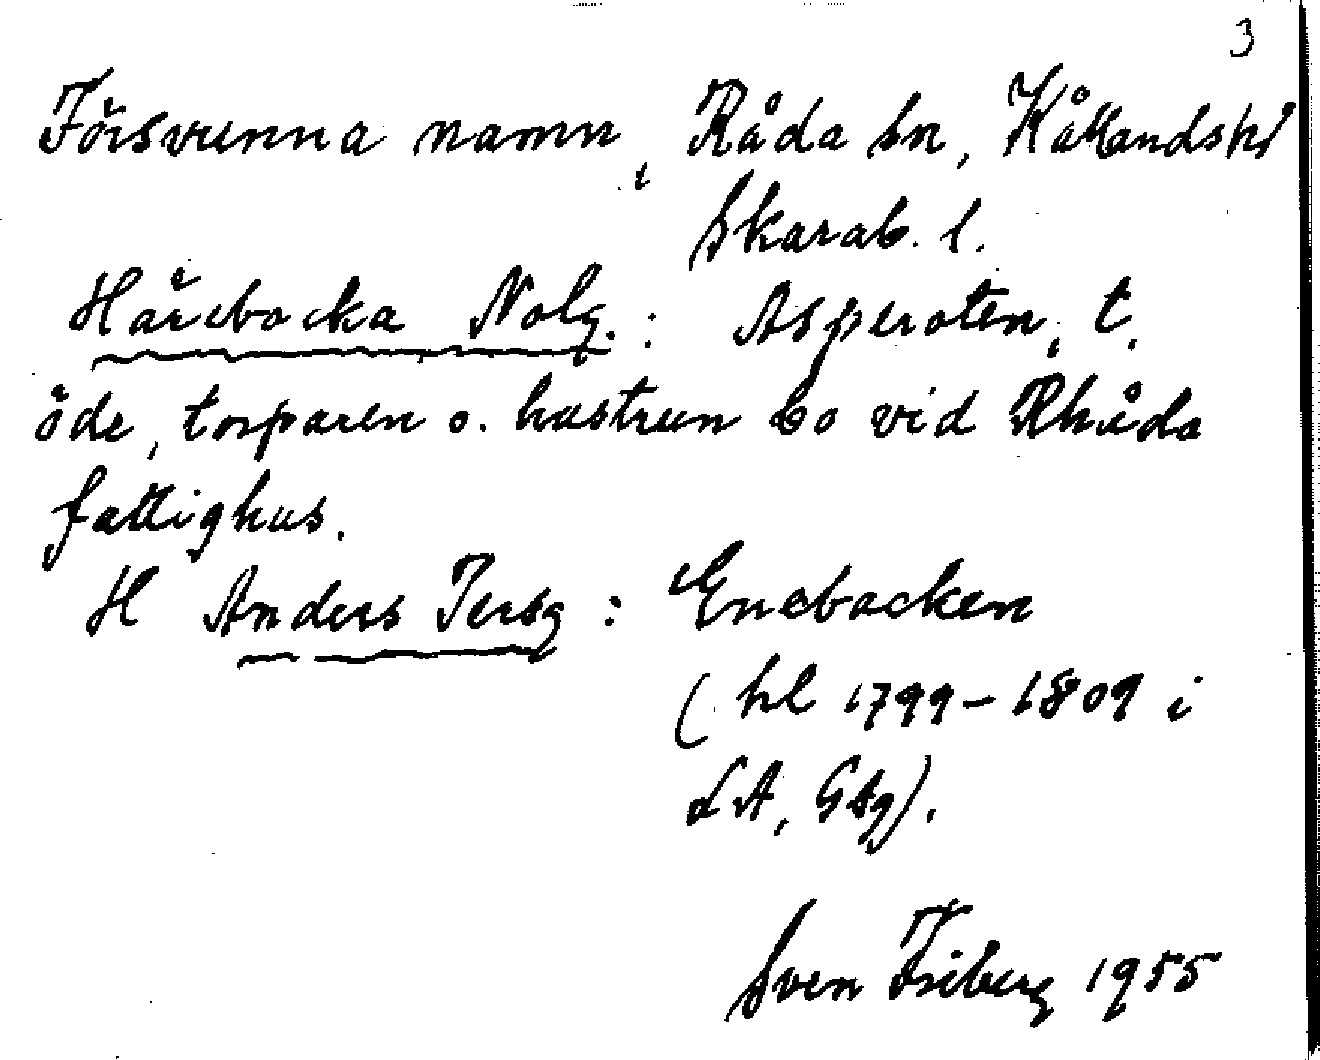 3
Försvunna namn i Råda sn, Kållands hd
Skarab. l.
Hårebacka Nolg.: Asperoten, t.
öde, torparen o. hustrun bo vid Rhåda
fattighus.
H Anders Persg: Enebacken
(hl 1799-1809 i
LA, Gbg).
Sven Friberg 1955